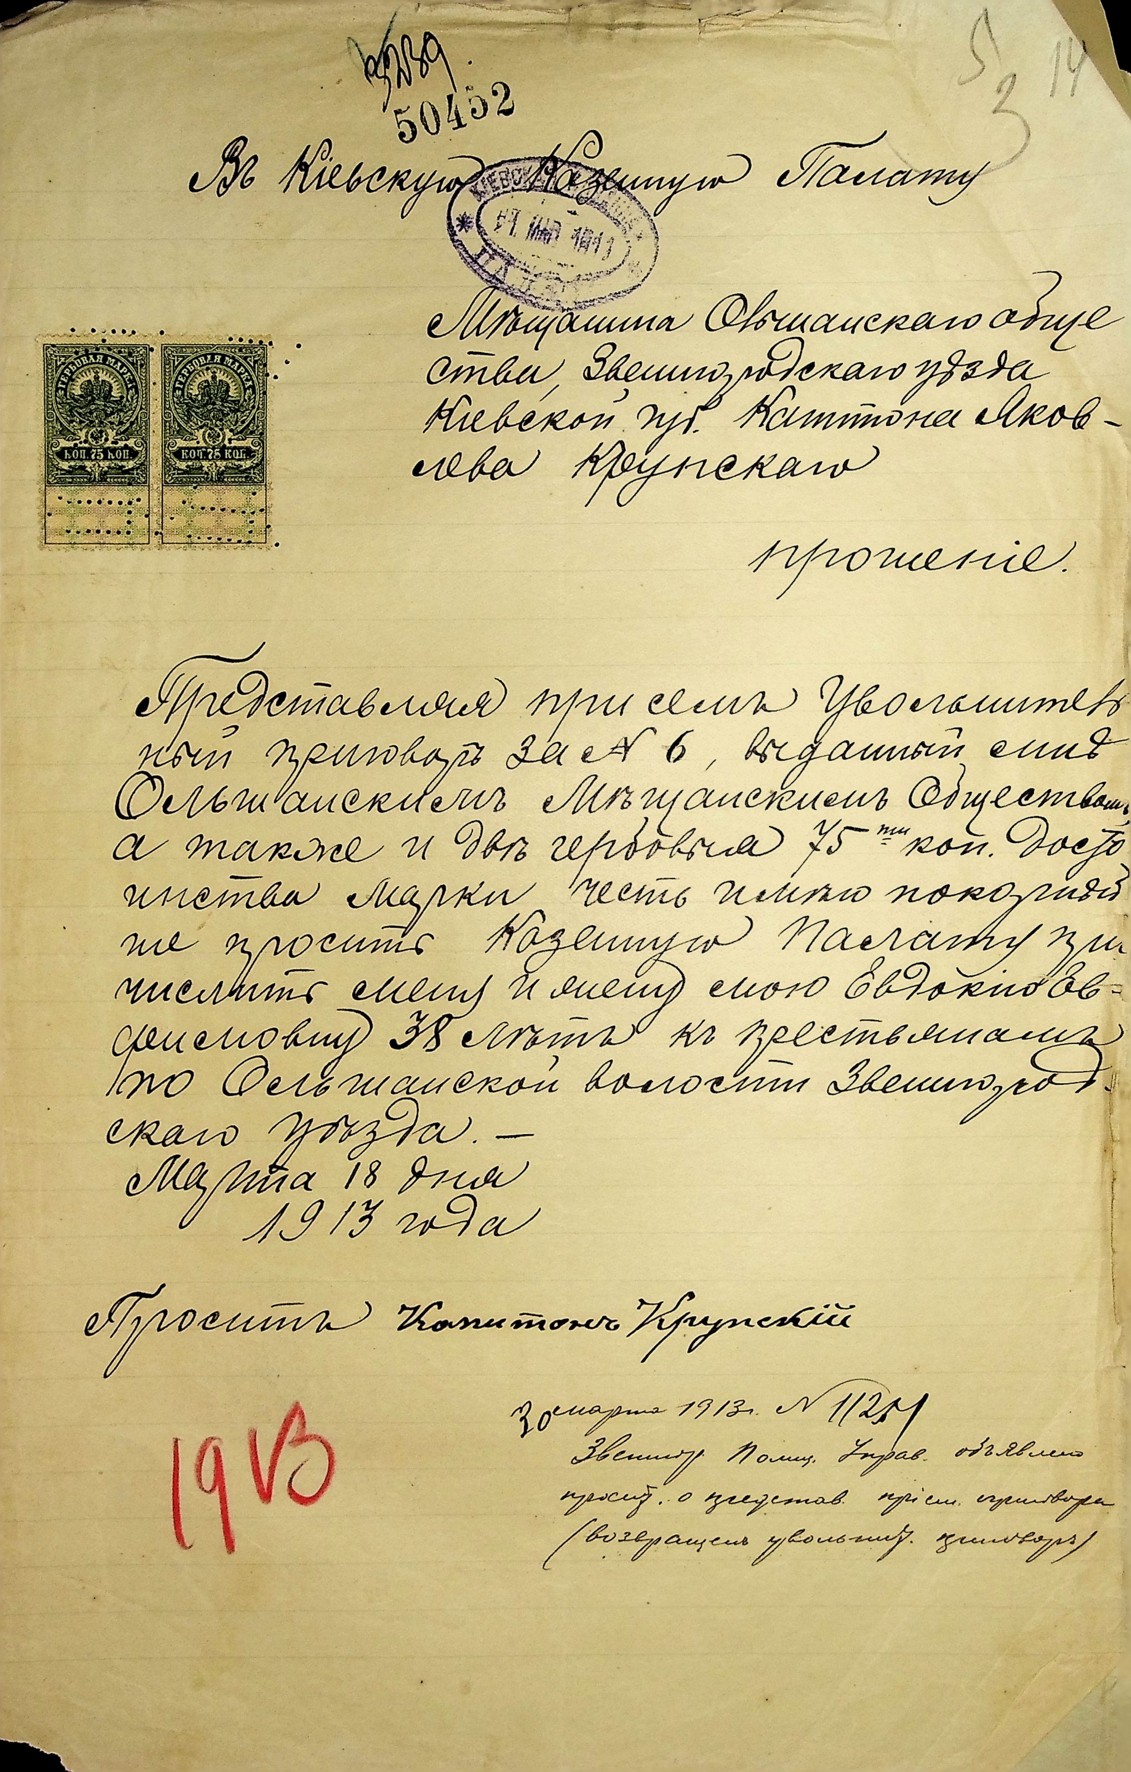 50452
5
2
14
Въ Кіевскую Казенную Палату
КІЕВСКАЯ
ПАЛАТА
Мѣщанина Овьшанскаго обще
ства, Звенигородскаго уѣзда
Кіевской губ. Капитона Яков-
лева Крупскаго
ГЕРБОВАЯ МАРКА ГЕРБОВАЯ МАРКА
КОП. 75 КОП. КОП. 75 КОП.
прошеніе.
Представляя при семъ Увольнитель
ный приговоръ за № 6, выданный мнѣ
Ольшанскимъ Мѣщанскимъ Обществомъ,
а также и двѣ гербовыя 75ти коп. досто
инства марки честь имѣю покорнѣй
ше просить Казенную Палату при
числить меня и жену мою Евдокію Ев-
фимовну 38 лѣтъ къ крестьянамъ
по Ольшанской волости Звенигород-
скаго уѣзда. —
Марта 18 дня
1913 года
Проситъ Капитонъ Крупскій
30 марта 1913г. №
Звениг Полиц. Управ. объявлено
просит. о представ. пріем. приговора
(возвращенъ увольнит. приговоръ)
19